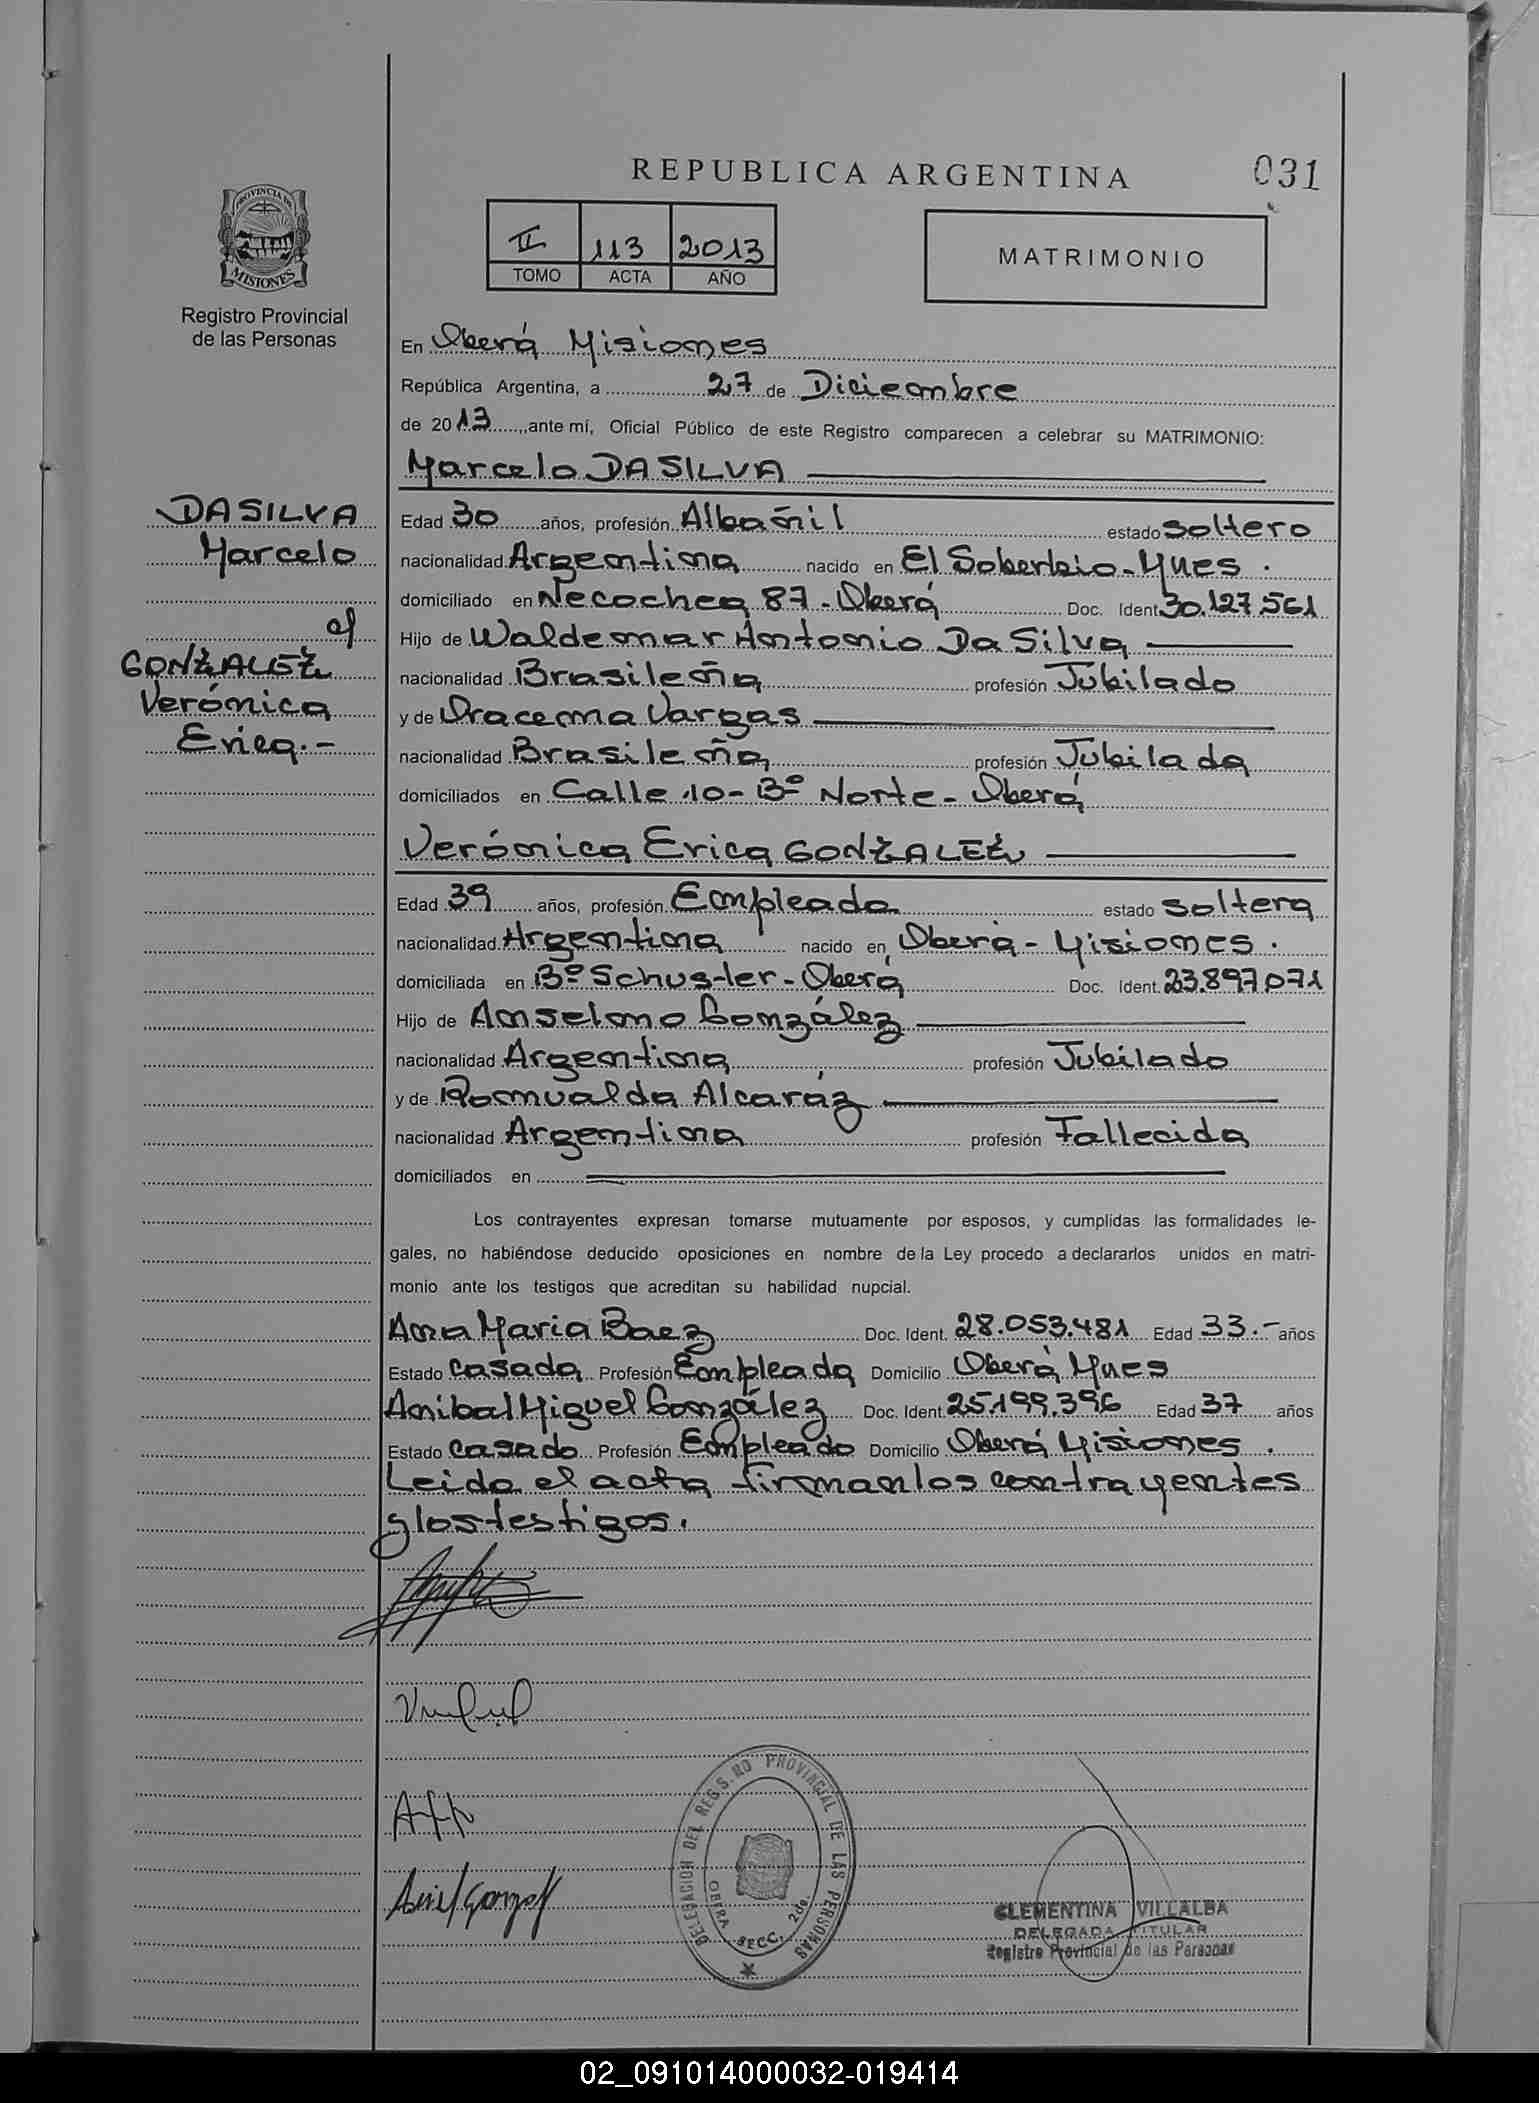 REPUBLICA ARGENTINA
031
PROVINCIA DE
MISIONES
Registro Provincial
de las Personas
II 113 2013
TOMO ACTA AÑO
MATRIMONIO
En Oberá Misiones
República Argentina, a 27 de Diciembre
de 2013, ante mí, Oficial Público de este Registro comparecen a celebrar su MATRIMONIO:
Marcelo DA SILVA
DA SILVA
Marcelo
c/
GONZALEZ
Verónica
Erica.-
Edad 30 años, profesión Albañil estado soltero
nacionalidad Argentina nacido en El Soberbio-Mnes.
domiciliado en Necochea 87-Oberá Doc. Ident. 30.127.561
Hijo de Waldemar Antonio Da Silva
nacionalidad Brasileña profesión Jubilado
y de Oracema Vargas
nacionalidad Brasileña profesión Jubilada
domiciliados en Calle 10-Bº Norte-Oberá
Verónica Erica GONZALEZ
Edad 39 años, profesión Empleada estado soltera
nacionalidad Argentina nacido en Oberá-Misiones.
domiciliada en Bº Schuster-Oberá Doc. Ident. 23.897.071
Hijo de Anselmo González
nacionalidad Argentina profesión Jubilado
y de Romualda Alcaráz
nacionalidad Argentina profesión Fallecida
domiciliados en
Los contrayentes expresan tomarse mutuamente por esposos, y cumplidas las formalidades le-
gales, no habiéndose deducido oposiciones en nombre de la Ley procedo a declararlos unidos en matri-
monio ante los testigos que acreditan su habilidad nupcial.
Ana Maria Baez Doc. Ident. 28.053.481 Edad 33.- años
Estado casada Profesión Empleada Domicilio Oberá Mnes
Anibal Miguel González Doc. Ident. 25.199.396 Edad 37 años
Estado casado Profesión Empleado Domicilio Oberá Misiones.
Leida el acta firman los contrayentes
y los testigos.
DELEGACION DEL REGISTRO PROVINCIAL DE LAS PERSONAS
OBERA SECC. 2da.
CLEMENTINA VILLALBA
DELEGADA TITULAR
Registro Provincial de las Personas
02_091014000032-019414